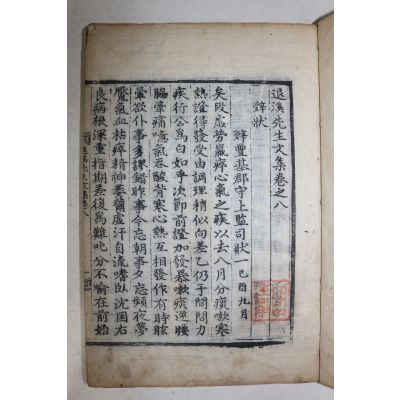 退溪先生文集卷之八
辭狀
辭豊基郡守上監司狀一 己酉九月
矣段虛勞羸瘁心氣之疾以去八月分痰嗽寒
熱證得發受由調理稍似向差乙仍于間間力
疾行公爲白如乎次節前證加發暴嗽痰逆腰
脇牽痛噫氣吞酸背寒心熱互相發作有時眩
暈欲仆事多謬錯昨事今忘朝事夕忘頻夜夢
魘氣血枯瘁精神萎薾虛汗自流嗜臥沈困右
良病根深重指期差復爲難叱分不喻在前始